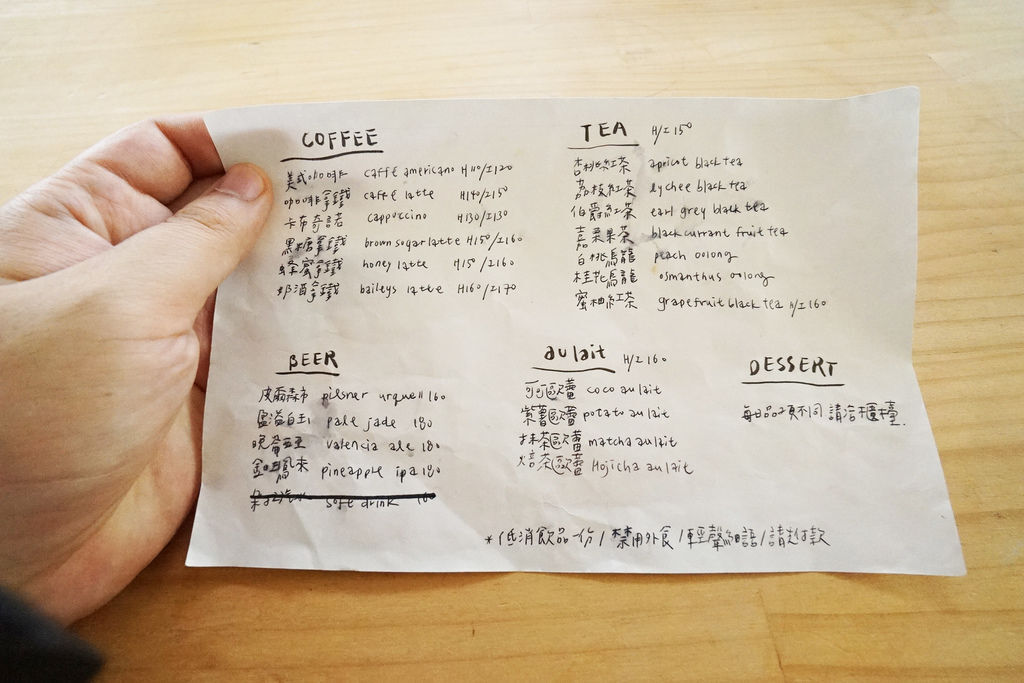 COFFEE
美式咖啡 caffé americano H110/I120
咖啡拿鐵 caffé latte H140/I150
卡布奇諾 cappuccino H130/I130
黑糖拿鐵 brown sugar latte H150/I160
蜂蜜拿鐵 honey latte H150/I160
奶酒拿鐵 baileys latte H160/I170
TEA H/I 150
杏桃紅茶 apricot black tea
荔枝紅茶 lychee black tea
伯爵紅茶 earl grey black tea
嘉栗果茶 black currant fruit tea
白桃烏龍 peach oolong
桂花烏龍 osmanthus oolong
蜜柚紅茶 grapefruit black tea H/I 160
BEER
皮爾森市 pilsner urquell 160
盈溢白玉 pale jade 180
晚崙西亞 valencia ale 180
金鳳來 pineapple ipa 180
soft drink
au lait H/I 160
可可歐蕾 coco au lait
紫薯歐蕾 potato au lait
抹茶歐蕾 matcha au lait
焙茶歐蕾 Hojicha au lait
DESSERT
每日品項不同 請洽櫃檯.
*低消飲品一份/禁用外食/輕聲細語/請先付款